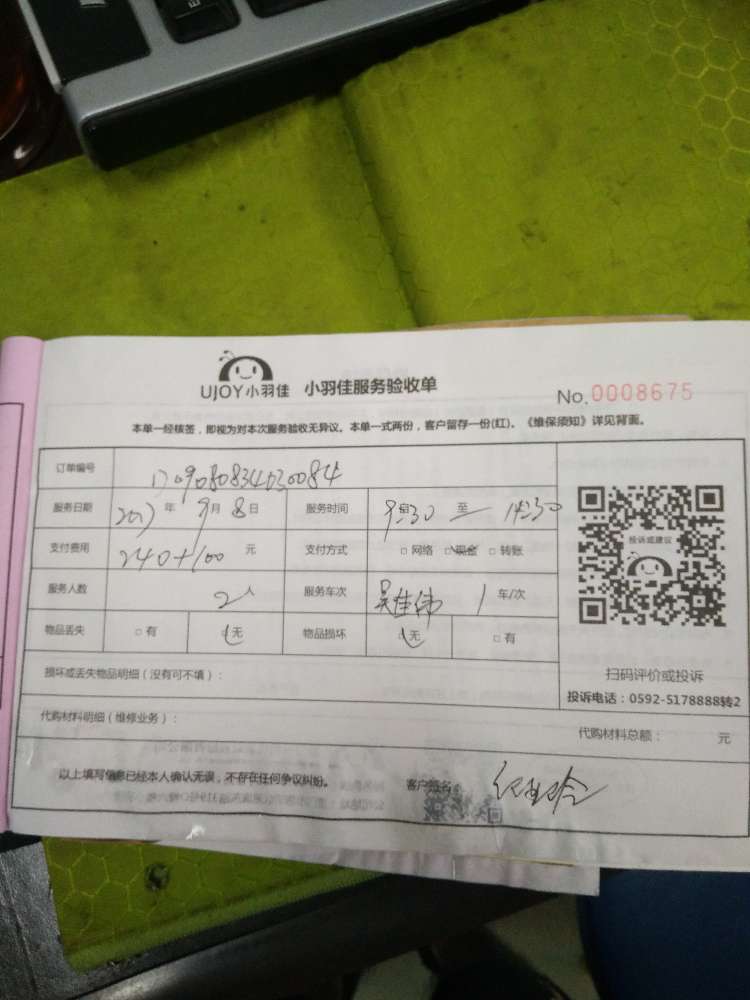 UJOY小羽佳 小羽佳服务验收单
No.0008675
本单一经核签，即视为对本次服务验收无异议。本单一式两份，客户留存一份(红)。《维保须知》详见背面。
订单编号
服务日期 2017年 9月 8日 服务时间 9:30 至 14:30
支付费用 240+100 元 支付方式 □网络 □现金 □转账
服务人数 2人 服务车次 吴佳伟 1 车/次
物品丢失 □有 □无 物品损坏 □无 □有
损坏或丢失物品明细（没有可不填）：
代购材料明细（维修业务）：
代购材料总额： 元
以上填写信息已经本人确认无误，不存在任何争议纠纷。 客户签名：
投诉或建议
扫码评价或投诉
投诉电话：0592-5178888转2